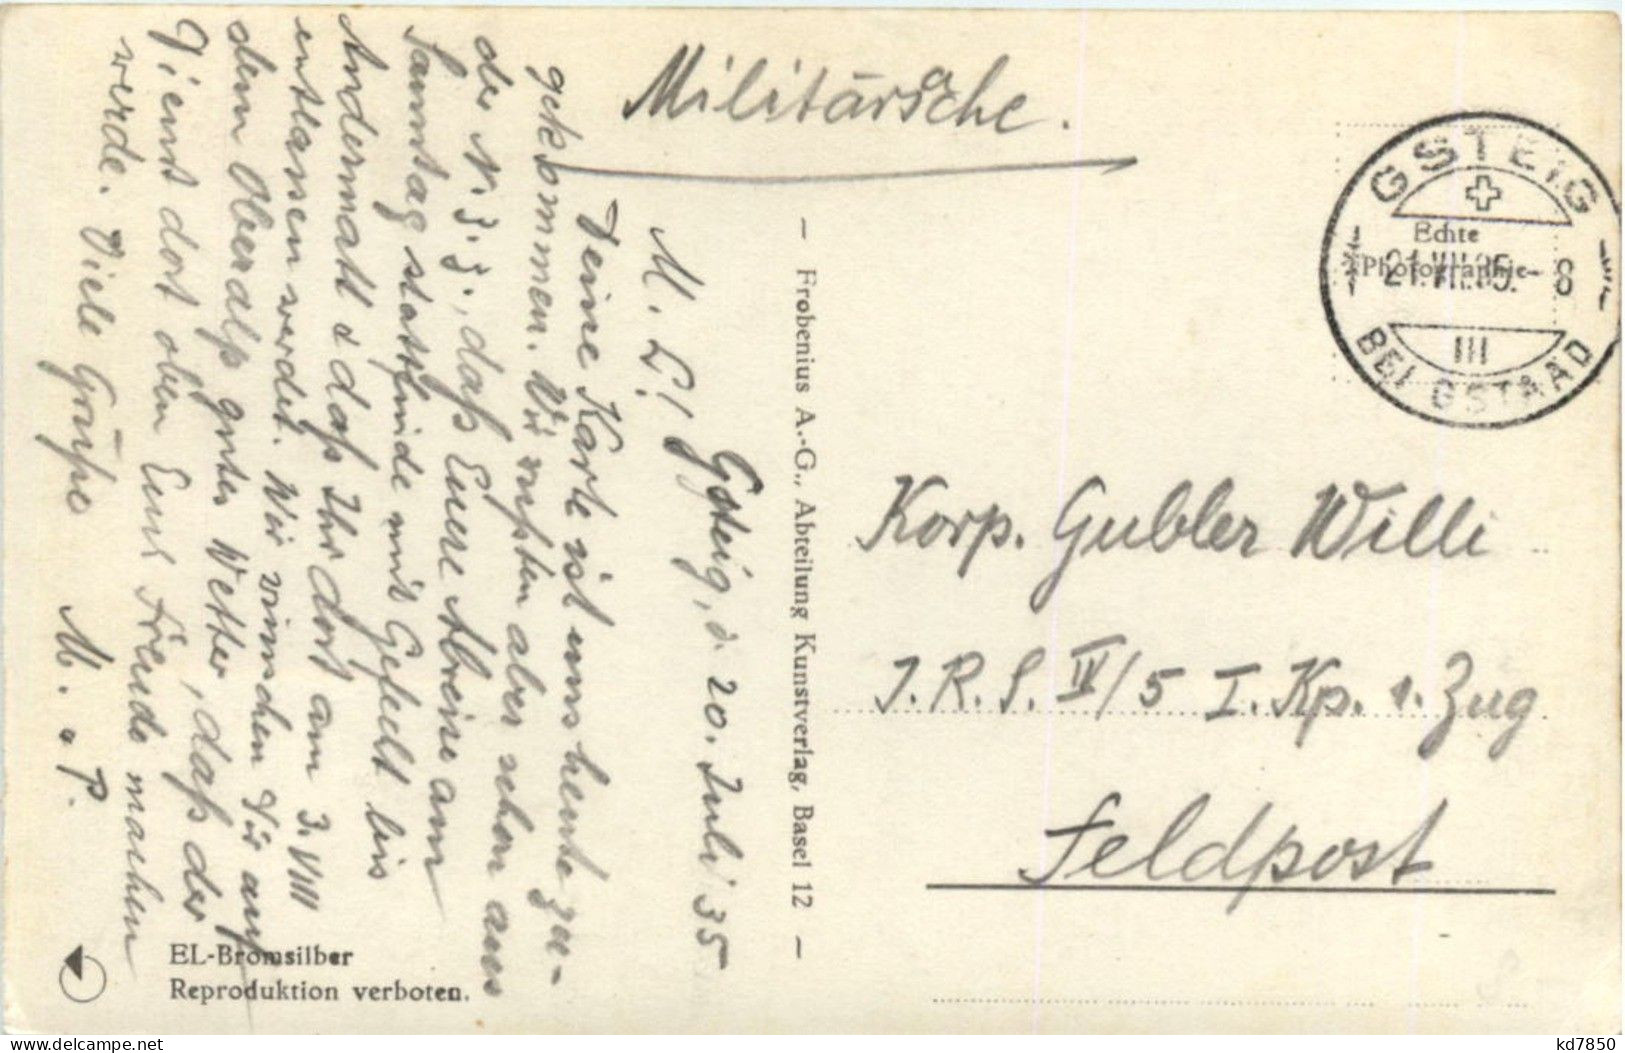 Militärsche.
M. L!
Gsteig, d. 20. Juli 35
Deine Karte ist uns heute zu-
gekommen. Wir wußten aber schon aus
der N. Z. Z., daß Eure Abreise am
Samstag stattfinde mit Gefecht bis
Andermatt & daß Ihr dort am 3. VIII
entlassen werdet. Wir wünschen Dir auf
dem Oberalp gutes Wetter, daß der
Dienst dort oben Euch Freude machen
werde. Viele Grüße
M. & P.
EL-Bromsilber
Reproduktion verboten.
— Frobenius A.-G., Abteilung Kunstverlag, Basel 12 —
GSTEIG
Echte
Photographie
21.VII.35. - 8
III
BEI GSTAAD
Korp. Gubler Willi
I.R.S. IV/5 I. Kp. 1. Zug
Feldpost
delcampe.net
kd7850